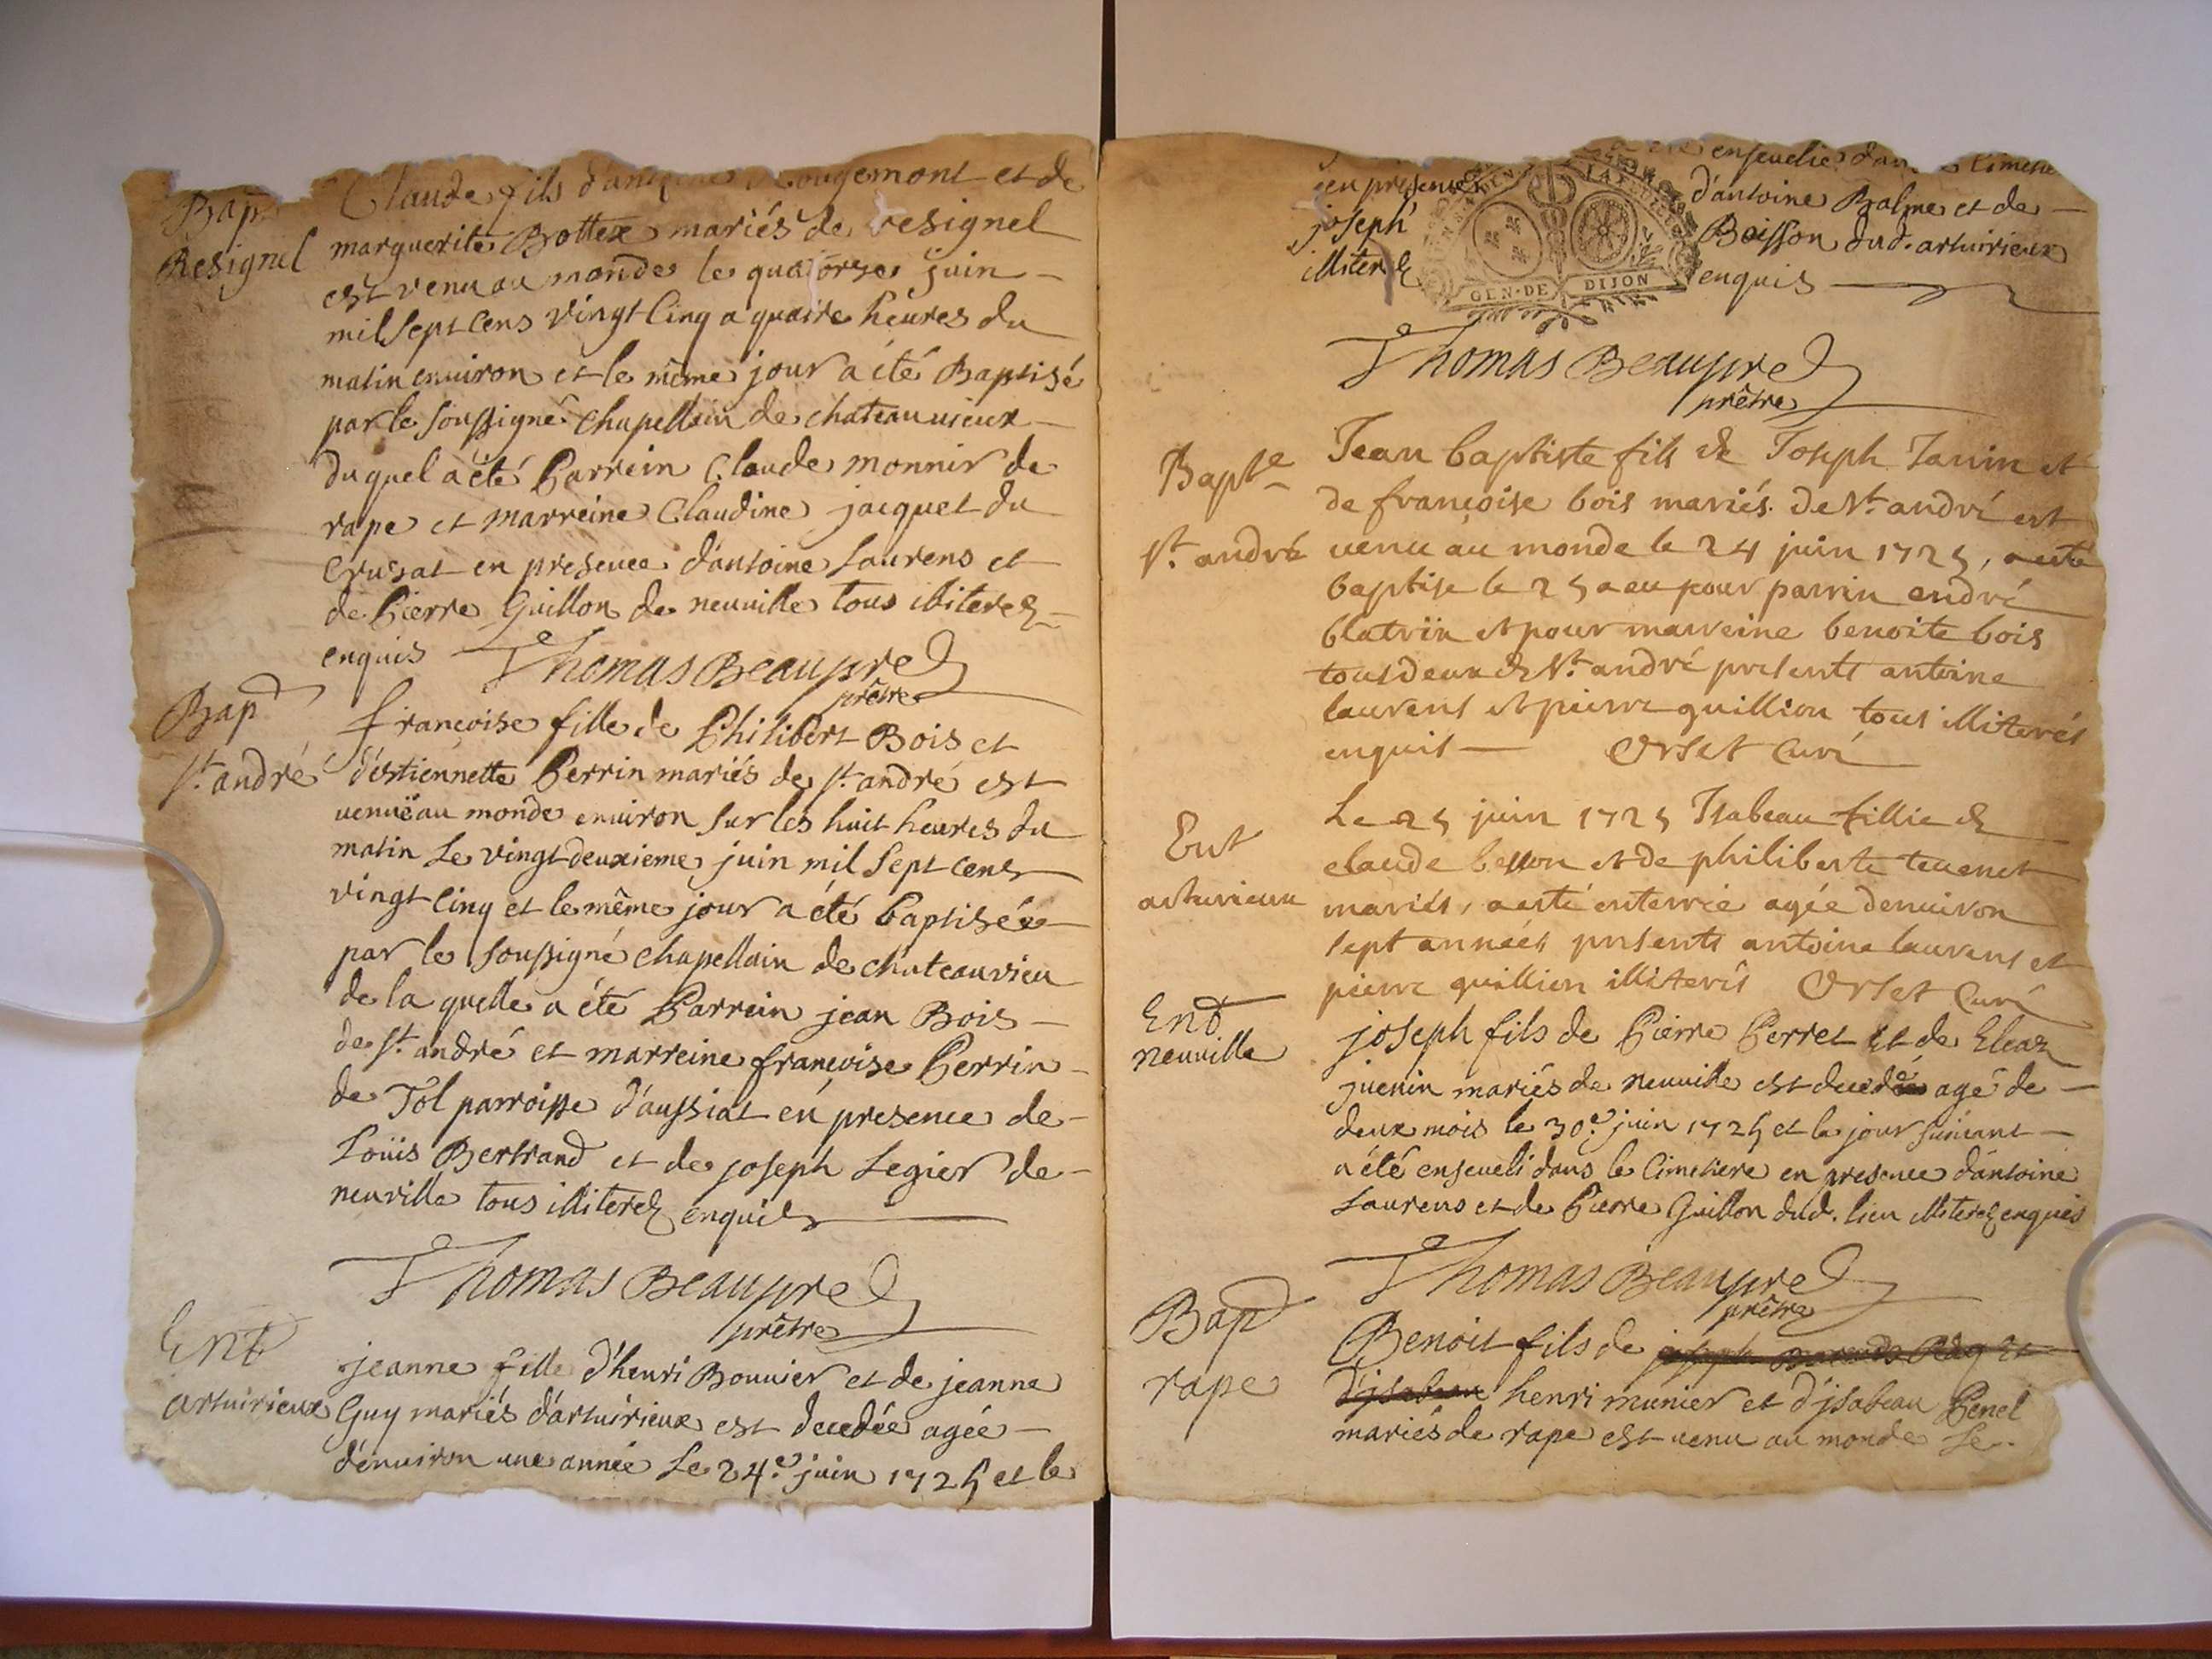 Bap
Resignel
Claude fils ougemont et de
marguerite Bottex mariés de resignel
est venu au monde le quatorze juin
mil sept cens vingt cinq a quatre heures du
matin environ et le même jour a été Baptisé
par le soussigné chapellain de chateauvieux
duquel a été Parrein Claude monnir de
rape et marreine Claudine jacquet du
Crusat en presence d'antoine Laurens et
de Pierre Guillon de neuville tous illiterez
enquis Thomas Beaupre
prêtre
Bap
st. andré
françoise fille de Philibert Bois et
d'estiennette Perrin mariés de st. andré est
venuë au monde environ sur les huit heures du
matin Le vingt deuxieme juin mil sept cens
vingt cinq et le même jour a été baptisée
par le soussigné chapellain de chateauvieu
de la quelle a été Parrein jean Bois
de st. andré et marreine françoise Perrin
de Tol parroisse d'aussiat en presence de
Loüis Bertrand et de joseph Legier de
neuville tous illiterez enquis
Thomas Beaupre
prêtre
Ent
artuirieux
jeanne fille d'henri Bouvier et de jeanne
Guy mariés d'artuirieux est decedée agée
d'environ une année Le 24.e juin 1725 et le
ensevelie dan Cimetie
en presence d'antoine Balme et de
joseph Boisson dud. artuirieux
illiterez enquis
GEN·DE DIJON
Thomas Beaupre
prêtre
Bapte
st. andré
Jean baptiste fils de Joseph Janin et
de françoise bois mariés de st. andré est
venu au monde le 24 juin 1725, a esté
baptise le 25 a eu pour parrin andré
blatrin et pour marreine benoite bois
tous deux de st. andré presents antoine
laurens et pierre quillion tous illiterés
enquis Orset Curé
Ent
artuirieux
Le 25 juin 1725 Isabeau fillie de
claude besson et de philiberte tevenet
mariés, a esté enterrée agée denviron
sept années presents antoine laurens et
pierre quillion illiterés Orset Curé
Ent
neuville
joseph fils de Pierre Perret et de Eleaz
juenin mariés de neuville est decedé agé de
deux mois le 30.e juin 1725 et le jour suivant
a été enseveli dans le Cimetiere en presence d'antoine
Laurens et de Pierre Guillon dud. lieu illiterez enquis
Thomas Beaupre
prêtre
Bap
rape
Benoit fils de
d'jsabeau henri munier et d'jsabeau Penel
mariés de rape est venu au monde Le